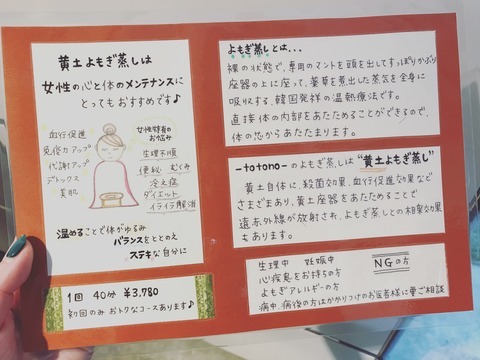 黄土よもぎ蒸しは
女性の心と体のメンテナンスに
とってもおすすめです♪
血行促進
免疫力アップ
代謝アップ
デトックス
美肌
女性特有の
お悩み
生理不順
便秘 むくみ
冷え症
ダイエット
イライラ解消
温めることで体がゆるみ
バランスをととのえ
ステキな自分に
1回 40分 ¥3,780
初回のみ おトクなコースあります♪
よもぎ蒸しとは...
裸の状態で、専用のマントを頭を出してすっぽりかぶり
座器の上に座って、薬草を煮出した蒸気を全身に
吸収する、韓国発祥の温熱療法です。
直接体の内部をあたためることができるので、
体の芯からあたたまります。
-totono-のよもぎ蒸しは"黄土よもぎ蒸し"
黄土自体に、殺菌効果、血行促進効果など
さまざまあり、黄土座器をあたためることで
遠赤外線が放射され、よもぎ蒸しとの相乗効果
もあります。
生理中 妊娠中
NGの方
心疾患をお持ちの方
よもぎアレルギーの方
病中、病後の方はかかりつけのお医者様に要ご相談